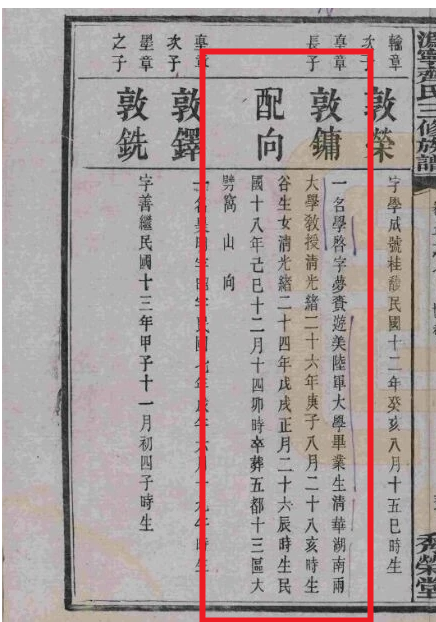 溈寧齊氏三修族譜
秀榮堂
輪章
次子
敦榮
字學成號桂馥民國十二年癸亥八月十五巳時生
皐章
長子
敦鏞
一名學啓字夢賚遊美陸軍大學畢業生清華湖南兩
大學教授清光緒二十六年庚子八月二十八亥時生
配向
谷生女清光緒二十四年戊戌正月二十六辰時生民
國十八年己巳十二月十四卯時卒葬五都十三區大
劈窩山向
皐章
次子
敦鐸
墨章
之子
敦銑
字善繼民國十三年甲子十一月初四子時生